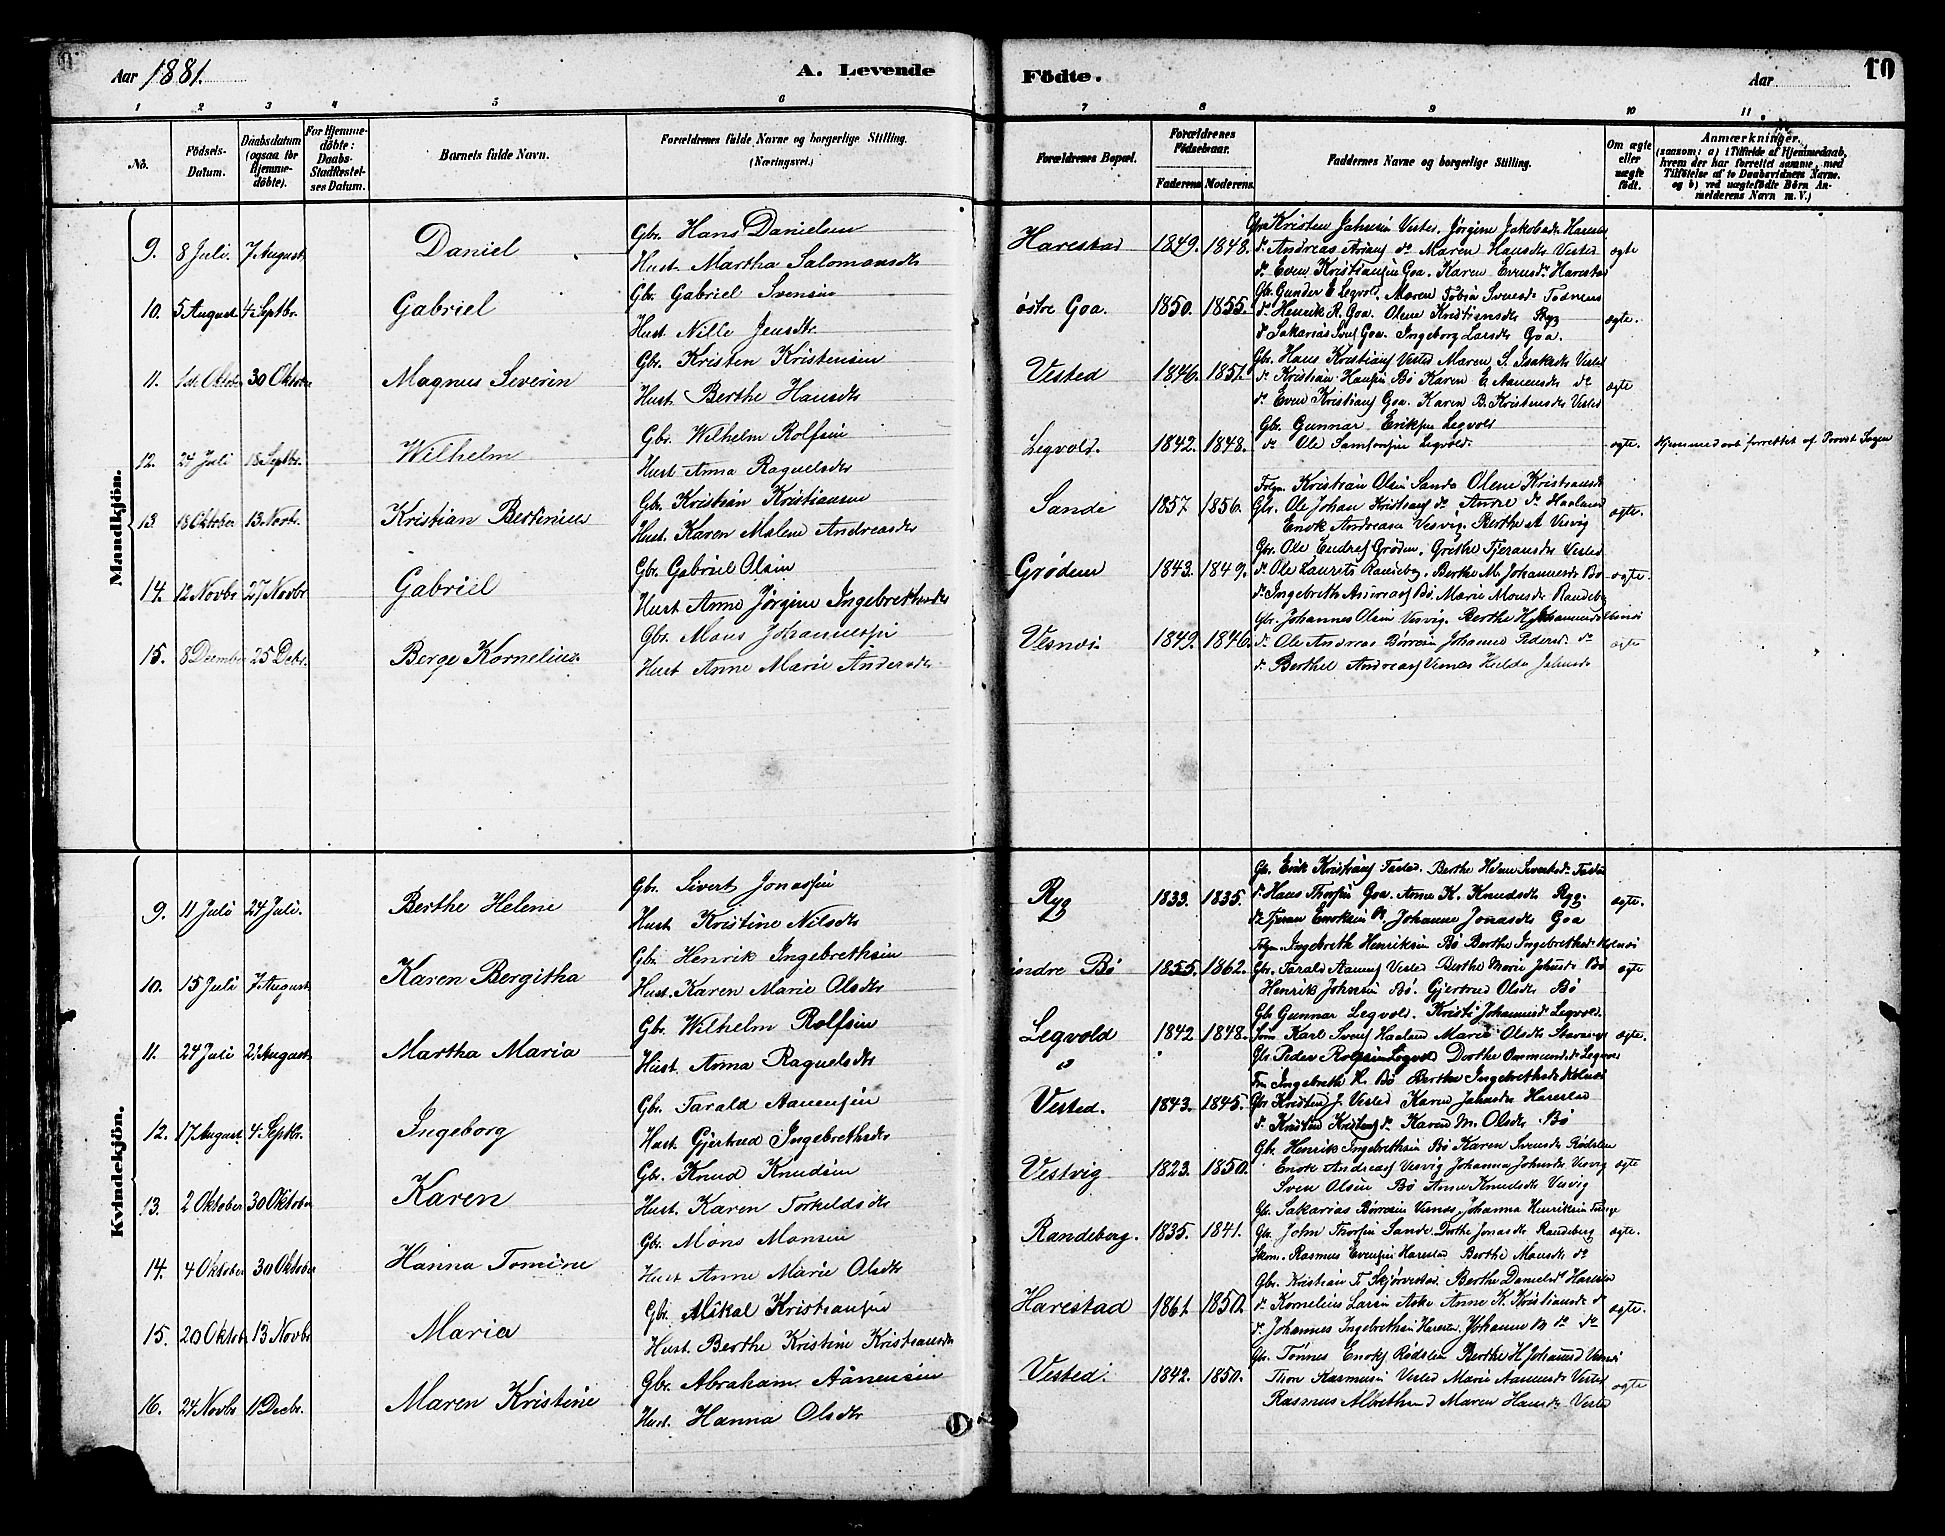 Aar 1881.
A. Levende
Födte.
Aar
10
1 2 3 4 5 6 7 8 9 10 11
No.
Födsels-
Datum.
Daabsdatum
(ogsaa for
Hjemme-
döbte).
For Hjemme-
döbte:
Daabs-
Stadfæstel-
ses Datum.
Barnets fulde Navn.
Forældrenes fulde Navne og borgerlige Stilling.
(Næringsvei.)
Forældrenes Bopæl.
Forældrenes
Födselsaar.
Faderens. Moderens.
Faddernes Navne og borgerlige Stilling.
Om ægte
eller
uægte
födt.
Anmærkninger.
(saasom: a) i Tilfælde af Hjemmedaab,
hvem der har forrettet samme, med
Tilföielse af to Daabsvidners Navne.
og b) ved uægtefödte Börn An-
melderens Navn m. V.)
Mandkjön.
9. 8 Juli. 7 August Daniel
Gbr. Hans Danielsen
Hust. Martha Salomonsdtr
Harestad 1849. 1848.
Kristen Jahnsen Vested, Jørgine Jakobsdtr Harestad
do Andreas do Maren Hansdtr Vested
do Even Kristiansen Goa. Karen Evensdtr Harestad
ægte
10. 5 August 4 Septbr. Gabriel
Gbr. Gabriel Svensen
Hust. Nille Jensdtr.
østre Goa. 1850. 1855.
Gbr. Gunder E Legvold, Maren Tobia Svensdtr
do Henrik R. Goa. Olene Kristiansdtr Ryg
do Sakarias Goa. Ingeborg Larsdtr Goa.
ægte.
11. 1st Oktober 30 Oktober Magnus Severin
Gbr. Kristen Kristensen
Hust. Berthe Hansdtr
Vested 1846. 1851.
Gbr. Hans Kristians Vested Maren S. Isaksdtr Vested
do Kristian Hansen Bö Karen E Aanensdtr do
do Even Kristians Goa. Karen B. Kristensdtr Vested
ægte
12. 24 Juli 18 Septbr. Wilhelm
Gbr. Wilhelm Rolfsen
Hust. Anna Raguelsdtr
Legvold. 1842. 1848.
Gbr. Gunnar Eriksen Legvold
do Ole Samsonsen Legvold.
ægte. Hjemmedaab forrettet af Provst
13 18 Oktober 13 Novbr. Kristian Bertinius
Gbr. Kristian Kristiansen
Hust. Karen Malene Andreasdtr
Sande 1857 1856.
Kristian Olsen Sande Olene Kristiansdtr
Gbr. Ole Johan Kristians do Anne do Haaland
Enok Andreasen Vesvig. Berthe A Vesvig
ægte.
14. 12 Novbr 27 Novbr Gabriel
Gbr. Gabriel Olsen
Hust Anne Jørgine Ingebrethsdtr
Grødem 1843. 1849.
Gbr. Ole Endres Grödem, Grethe Tjeransdtr Vested
do Ole Laurits Randeberg. Berthe M. Johannesdtr Bö
do Ingebreth Bö Marie Monsdtr Randeberg
ægte.
15. 8 December 25 Decbr. Berge Kornelius
Gbr. Mons Johannessen
Hust Anne Marie Andersdtr.
Vesnes 1849. 1846.
Gbr. Johannes Olsen Vesvig. Berthe H. Johannesdtr
do Ole Andreas Børresen Johanne Pedersdtr do
do Berthel Andreas Vesnes Helda Johnsdtr
ægte
Kvindekjön.
9. 11 Juli 24 Juli. Berthe Helene
Gbr. Sivert Jonassen
Hust Kristine Nilsdtr
Ryg 1833. 1835.
Gbr. Erik Kristians Tasted. Berthe Helene Sivertsdtr
do Hans Thorsen Goa. Anne K. Knudsdtr Ryg.
do Tjeran Enoksen do Johanne Jonasdtr Goa
ægte.
10. 15 Juli 7 August Karen Bergitha
Gbr. Henrik Ingebrethsen
Hust. Karen Marie Olsdtr
indre Bö 1855. 1862.
Ingebreth Henriksen Bö Berthe Ingebrethsdtr
Gbr. Tarald Aanens Vested Berthe Marie Johnsdtr Bö
Henrik Johnsen Bö. Gjertrud Olsdtr Bö
ægte
11. 24 Juli 21 August Martha Maria
Gbr. Wilhelm Rolfsen
Hust. Anna Raguelsdtr
Legvold 1842 1848.
Gbr Gunnar Legvold. Kristi Johannesdtr Legvold.
Karl Svens Haaland Marie Olsdtr Stavanger
Gbr. Peder Rolfsen Legvold Dorthe Legvold
ægte.
12. 17 August 4 Septbr. Ingeborg
Gbr. Tarald Aanensen
Hust. Gjertrud Ingebrethsdtr
Vested. 1843. 1845.
Ingebreth H. Bö Berthe Ingebrethsdtr
Gbr Kristen J. Vested Karen Jahnsdtr Harestad
do Kristen Kristens do Karen M. Olsdtr Bö
13. 2 Oktober 30 Oktober Karen
Gbr. Knud Knudsen
Hust. Karen Torkeldsdtr
Vestvig 1823. 1850.
Gbr. Henrik Ingebrethsen Bö Karen Svensdtr
Enok Andreas Vesvig Johanna Johnsdtr Vesvig
Sven Olsen Bö Anne Knudsdtr Vesvig
ægte
14. 4 Oktober 30 Oktober Hanna Tomine
Gbr. Mons Monsen
Hust Anne Marie Olsdtr
Randeberg. 1835. 1841.
Gbr. Sakarias Børresen Vesnes, Johanna Henriksen
Gbr. John Thorsen Sande Dorthe Jonasdtr Randeberg
Skom. Rasmus Evensen Harestad Berthe Monsdtr do
ægte.
15. 20 Oktober 13 Novbr Maria
Gbr. Mikal Kristiansen
Hust. Berthe Kristine Kristiansdtr
Harestad 1861. 1852
Gbr. Kristian T. Skjørvestad. Berthe Danielsdtr Harestad
do Kornelius Larsen Aske Anne K. Kristiansdtr do
do Johannes Ingebrethsen Harestad Johanne M do do
ægte.
16. 24 Novbr 11 Decbr. Maren Kristine
Gbr. Abraham Aanensen
Hust. Hanna Olsdtr
Vested. 1842. 1850.
Gbr. Tønnes Enoks Rødslen Berthe H. Johannesd
Thore Rasmussen Vested Marie Aanensdtr Vested
Rasmus Maren Hansdtr Vested
ægte